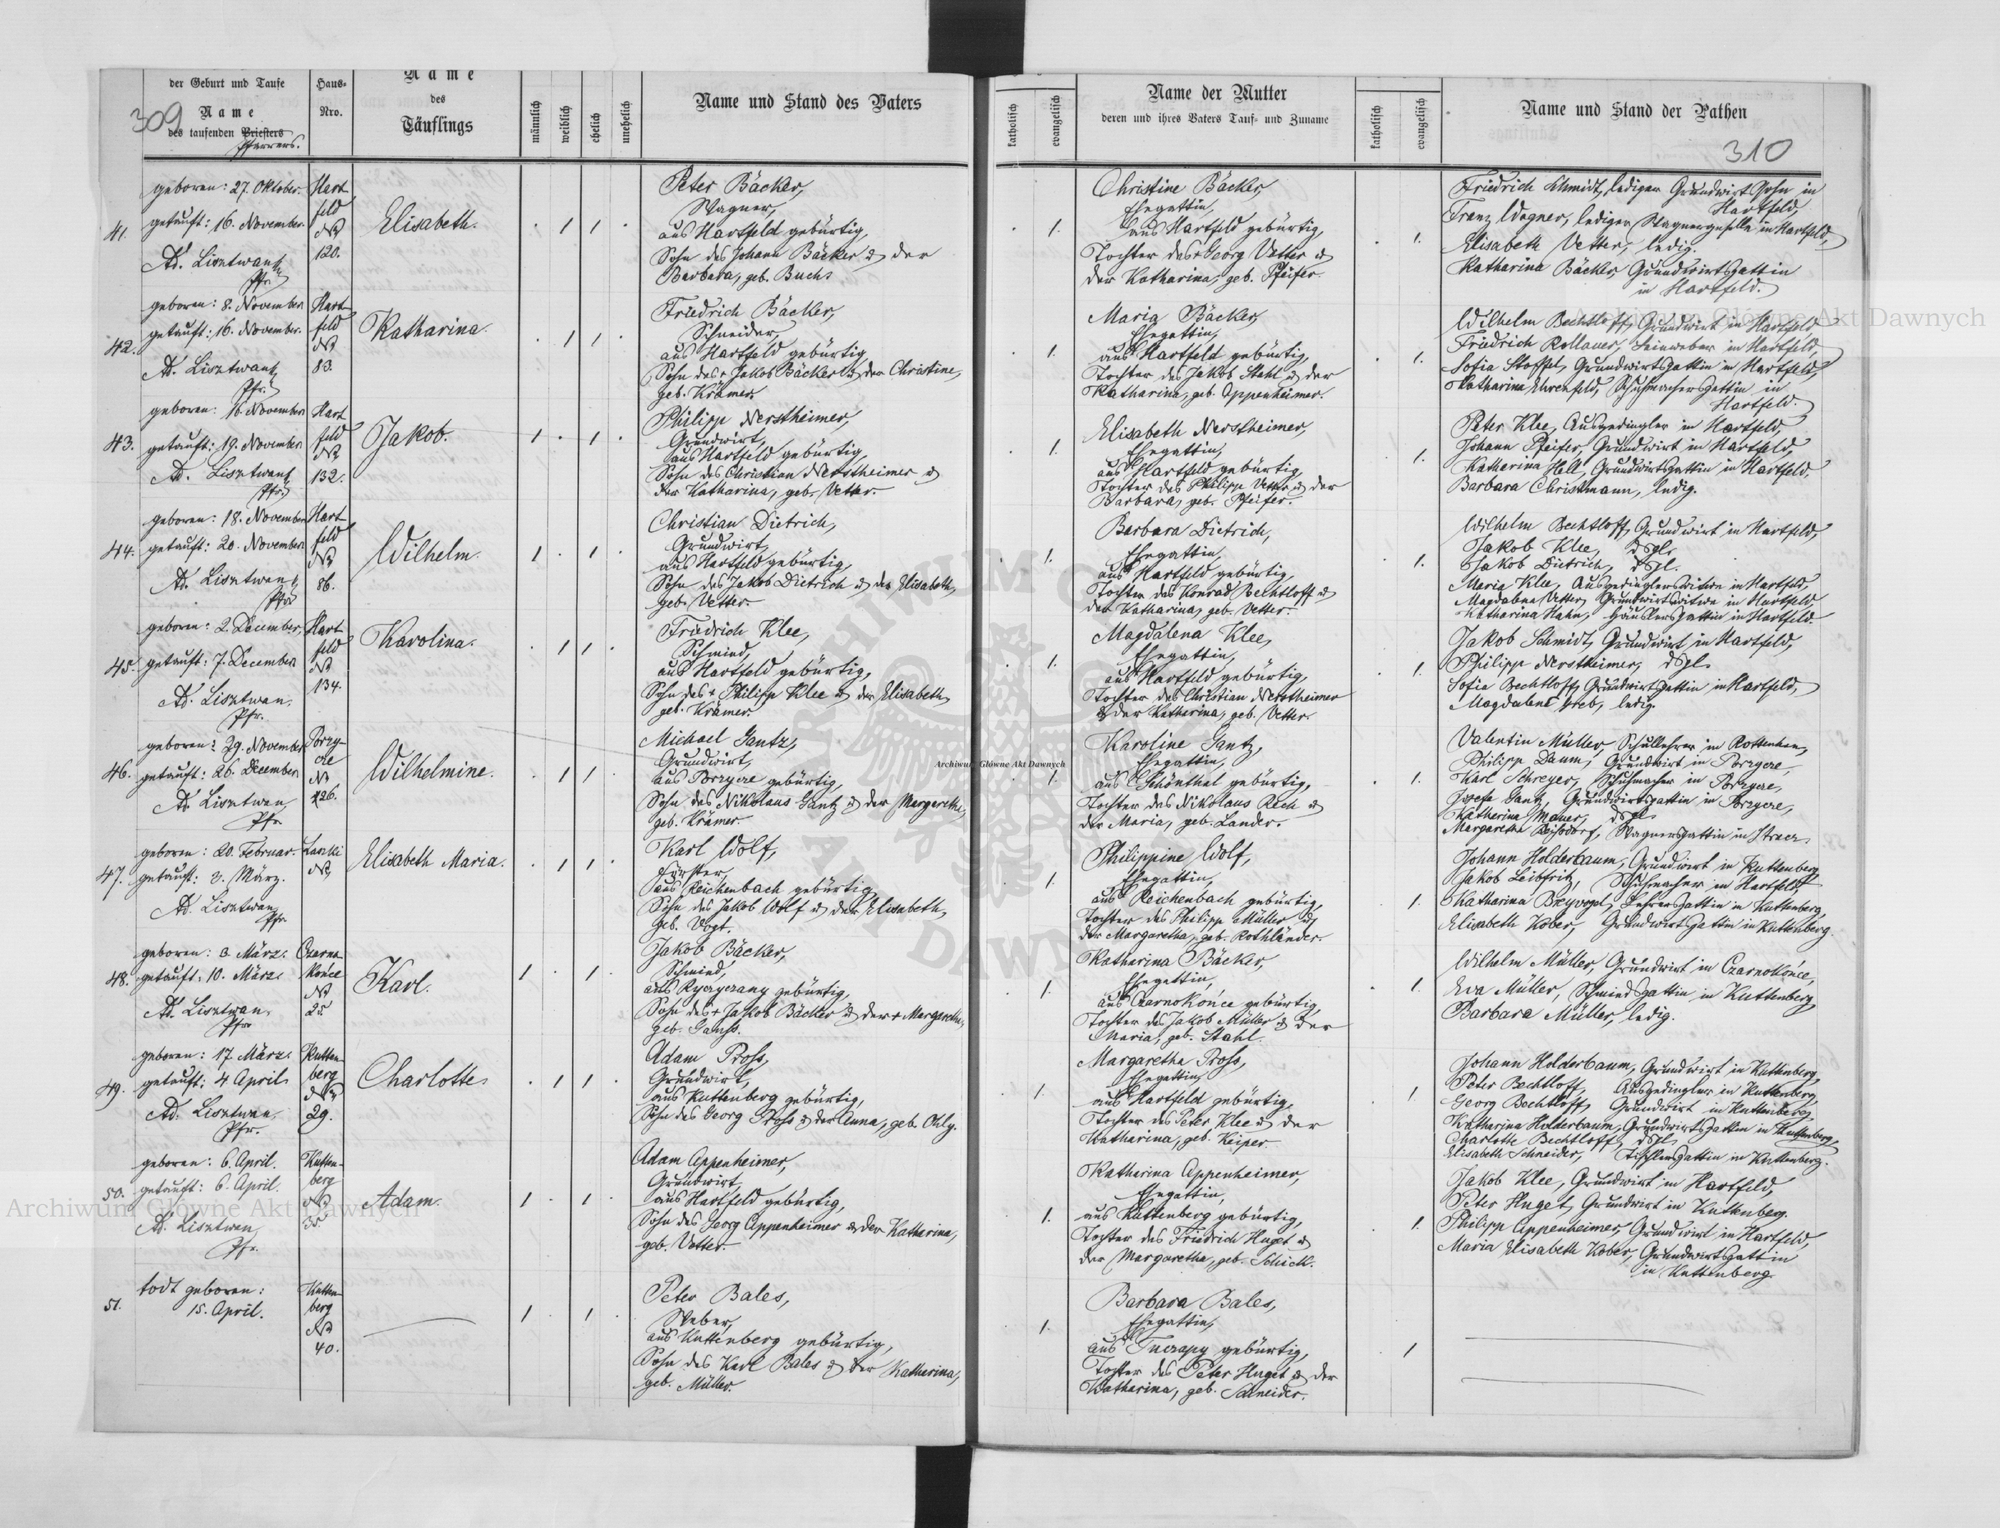 309
der Geburt und Taufe
Name
des taufenden Priesters
Pfarrers.
Haus-
Nro.
Name
des
Täuflings
männlich
weiblich
ehelich
unehelich
Name und Stand des Vaters
katholisch
evangelisch
Name der Mutter
deren und ihres Vaters Tauf- und Zuname
katholisch
evangelisch
Name und Stand der Pathen
310
41.
geboren: 27. Oktober.
getauft: 16. November.
Ad. Lisztwan
Pfr.
Hart
feld
No
120.
Elisabeth.
Peter Bäcker,
Wagner,
aus Hartfeld gebürtig,
Sohn des Johann Bäcker & der
Barbara, geb. Buchs
Christine Bäcker,
Ehegattin,
aus Hartfeld gebürtig,
Tochter des + Georg Vetter &
der Katharina, geb. Pfeifer.
Friedrich Schmidt, lediger Grundwirt Sohn in
Hartfeld,
Franz Wagner, lediger Wagnergeselle in Hartfeld,
Elisabeth Vetter, ledig.
Katharina Bäcker, Grundwirtsgattin
in Hartfeld.
42.
geboren: 8. November
getauft: 16. November.
Ad. Lisztwan
Pfr.
Hart
feld
No
83.
Katharina.
Friedrich Bäcker,
Schneider,
aus Hartfeld gebürtig,
Sohn des + Jakob Bäcker & der Christine,
geb. Krämer.
Maria Bäcker,
Ehegattin,
aus Hartfeld gebürtig,
Tochter des Jakob Stahl & der
Katharina, geb. Oppenheimer.
Wilhelm Bechtloff, Grundwirt in Hartfeld
Friedrich Rollauer, Leinweber in Hartfeld,
Sofia Stoffel, Grundwirtsgattin in Hartfeld,
Katharina Ehrenfeld, Schuhmachersgattin in
Hartfeld.
43.
geboren: 16. November
getauft: 19. November
Ad. Lisztwan
Pfr.
Hart
feld
No
132.
Jakob.
Philipp Nerstheimer,
Grundwirt,
aus Hartfeld gebürtig,
Sohn des Christian Nerstheimer &
der Katharina, geb. Vetter.
Elisabeth Nerstheimer,
Ehegattin,
aus Hartfeld gebürtig,
Tochter des Philipp Vetter & der
Barbara, geb. Pfeifer.
Peter Klee, Ausgedingler in Hartfeld,
Johann Pfeifer, Grundwirt in Hartfeld,
Katharina Hell, Grundwirtsgattin in Hartfeld,
Barbara Christmann, ledig.
44.
geboren: 18. November
getauft: 20. November
Ad. Lisztwan
Pfr
Hart
feld
No
86.
Wilhelm.
Christian Dietrich,
Grundwirt,
aus Hartfeld gebürtig,
Sohn des Jakob Dietrich & der Elisabeth,
geb. Vetter.
Barbara Dietrich,
Ehegattin,
aus Hartfeld gebürtig,
Tochter des Konrad Bechtloff &
der Katharina, geb. Vetter.
Wilhelm Bechtloff, Grundwirt in Hartfeld,
Jakob Klee, dgl.
Jakob Dietrich, dgl.
Maria Klee, Ausgedinglerswitwe in Hartfeld,
Magdalena Vetter, Grundwirtswitwe in Hartfeld
Katharina Hahn, Häuslersgattin in Hartfeld.
45.
geboren: 2. December,
getauft: 7. December
Ad. Lisztwan.
Pfr.
Hart
feld
No
134.
Karolina.
Friedrich Klee,
Schmied,
aus Hartfeld gebürtig,
Sohn des + Philipp Klee & der Elisabeth,
geb. Krämer.
Magdalena Klee,
Ehegattin,
aus Hartfeld gebürtig,
Tochter des Christian Nerstheimer
& der Katharina, geb. Vetter.
Jakob Schmidt, Grundwirt in Hartfeld,
Philipp Nerstheimer, dgl.
Sofia Bechtloff, Grundwirtsgattin in Hartfeld,
Magdalena Greb, ledig.
46.
geboren: 29. November
getauft: 26. December
Ad. Lisztwan
Pfr
Porzy-
cze
No
126.
Wilhelmine.
Michael Gantz,
Grundwirt,
aus Porzycze gebürtig,
Sohn des Nikolaus Gantz & der Margaretha,
geb. Krämer.
Karoline Gantz,
Ehegattin,
aus Schönthal gebürtig,
Tochter des Nikolaus Rech &
der Maria, geb. Lander.
Valentin Müller, Schullehrer in Rottenhan,
Philipp Daum, Grundwirt in Porzycze,
Karl Schreyer, Schuhmacher in Porzycze,
Josefa Gantz, Grundwirtsgattin in Porzycze,
Katharina Mauer, dgl.
Margaretha Bischdorf, Wagnersgattin in
47.
geboren: 20. Februar.
getauft: 3. März.
Ad. Lisztwan
Pfr.
No
Elisabeth Maria.
Karl Wolf,
Förster,
aus Reichenbach gebürtig,
Sohn des Jakob Wolf & der Elisabeth,
geb. Vogt.
Philippine Wolf,
Ehegattin,
aus Reichenbach gebürtig,
Tochter des Philipp Müller &
der Margaretha, geb. Rothländer.
Johann Holderbaum, Grundwirt in Kuttenberg,
Jakob Leibfritz, Schuhmacher in Hartfeld
Katharina Breyvogel, Lehrersgattin in Kuttenberg,
Elisabeth Kober, Grundwirtsgattin in Kuttenberg.
48.
geboren: 3. März.
getauft: 10. März.
Ad. Lisztwan.
Pfr
Czarno
końce
No
25
Karl.
Jakob Bäcker,
Schmied,
aus Ryczyczany gebürtig,
Sohn des + Jakob Bäcker & der + Margaretha,
geb. Ganss.
Katharina Bäcker,
Ehegattin,
aus Czarnokońce gebürtig,
Tochter des Jakob Müller & der
Maria, geb. Stahl
Wilhelm Müller, Grundwirt in Czarnokońce,
Eva Müller, Schmiedsgattin in Kuttenberg,
Barbara Müller, ledig.
49.
geboren: 17. März.
getauft: 4 April
Ad. Lisztwan.
Pfr.
Kutten-
berg
No
29.
Charlotte
Adam Pross,
Grundwirt,
aus Kuttenberg gebürtig,
Sohn des Georg Pross & der Anna, geb. Ohly.
Margaretha Pross,
Ehegattin,
aus Hartfeld gebürtig,
Tochter des Peter Klee & der
Katharina, geb. Keiper.
Johann Holderbaum, Grundwirt in Kuttenberg,
Peter Bechtloff, Ausgedingler in Kuttenberg,
Georg Bechtloff, Grundwirt in Kuttenberg,
Katharina Holderbaum, Grundwirtsgattin in Kuttenberg,
Charlotte Bechtloff, dgl.
Elisabeth Schneider, Tischlersgattin in Kuttenberg.
50.
geboren: 6. April.
getauft: 6. April.
Ad. Lisztwan
Pfr.
Kutten-
berg
No
35
Adam.
Adam Oppenheimer,
Grundwirt,
aus Hartfeld gebürtig,
Sohn des Georg Oppenheimer & der Katharina,
geb. Vetter.
Katharina Oppenheimer,
Ehegattin,
aus Kuttenberg gebürtig,
Tochter des Friedrich Huget &
der Margaretha, geb. Schick.
Jakob Klee, Grundwirt in Hartfeld,
Peter Huget, Grundwirt in Kuttenberg.
Philipp Oppenheimer, Grundwirt in Hartfeld,
Maria Elisabeth Kober, Grundwirtsgattin
in Kuttenberg.
51.
todt geboren:
15. April.
Kutten-
berg
No
40.
Peter Bales,
Weber,
aus Kuttenberg gebürtig,
Sohn des Karl Bales & der Katharina,
geb. Müller.
Barbara Bales,
Ehegattin,
aus Tucrapy gebürtig,
Tochter des Peter Huget & der
Katharina, geb. Schneider.
Archiwum Główne Akt Dawnych
Archiwum Główne Akt Dawnych
Archiwum Główne Akt Dawnych